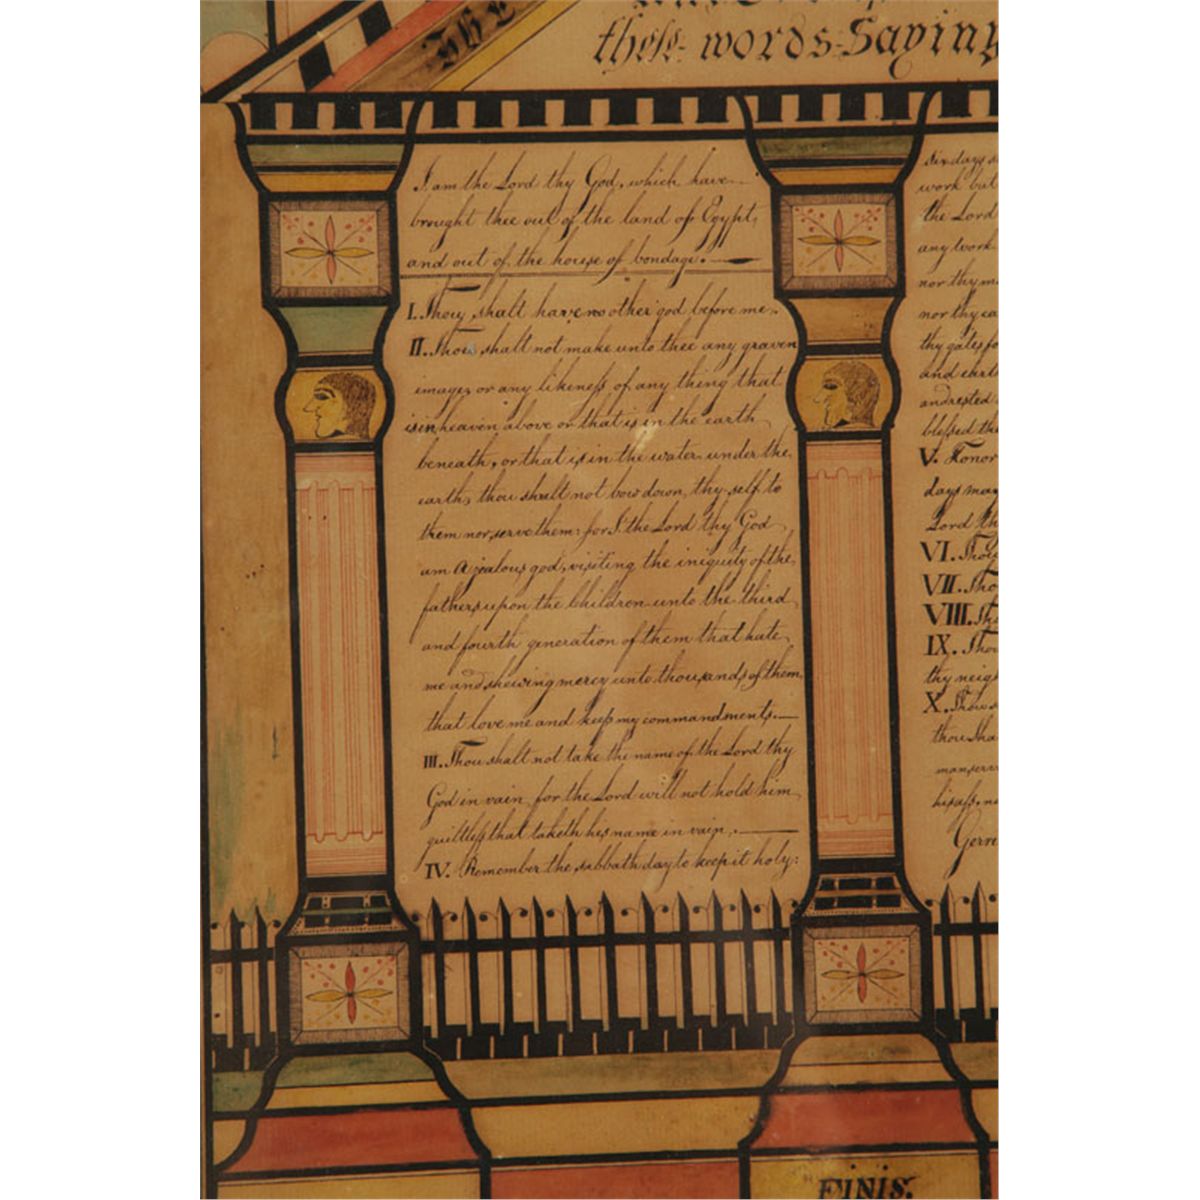 The
these words Saying
I am the Lord thy God, which have
brought thee out of the land of Egypt,
and out of the house of bondage.
I. Thou shalt have no other god before me.
II. Thou shalt not make unto thee any graven
images or any likeness of any thing that
is in heaven above or that is in the earth
beneath, or that is in the water under the
earth, thou shalt not bow down thy self to
them nor serve them: for I the Lord thy God
am a jealous god, visiting the iniquity of the
fathers upon the Children unto the third
and fourth generation of them that hate
me and shewing mercy unto thousands of them
that love me and keep my commandments.
III. Thou shalt not take the name of the Lord thy
God in vain for the Lord will not hold him
guiltless that taketh his name in vain.
IV. Remember the sabbath day to keep it holy:
six days s
work but
the Lord
any work
nor thy m
nor thy ca
thy gates fo
and earth
and rested
blessed the
V. Honor
days may
Lord th
VI. Thou
VII. Tho
VIII. Th
IX. Thou
thy neig
X. Thou s
thou sha
man, serv
his ass, n
Gerre
FINIS.